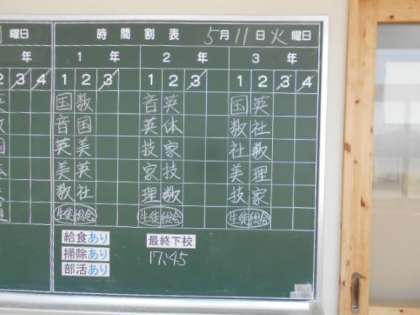 曜日 時間割表 5月11日火曜日
年 1年 2年 3年
2 3 4 1 2 3 1 2 3 1 2 3 4
国 数 音 英 国 英
音 国 英 体 数 社
英 美 技 家 社 数
美 英 家 技 美 理
数 社 理 数 技 家
生徒総会 生徒総会 生徒総会
給食あり 最終下校
掃除あり 17:45
部活あり